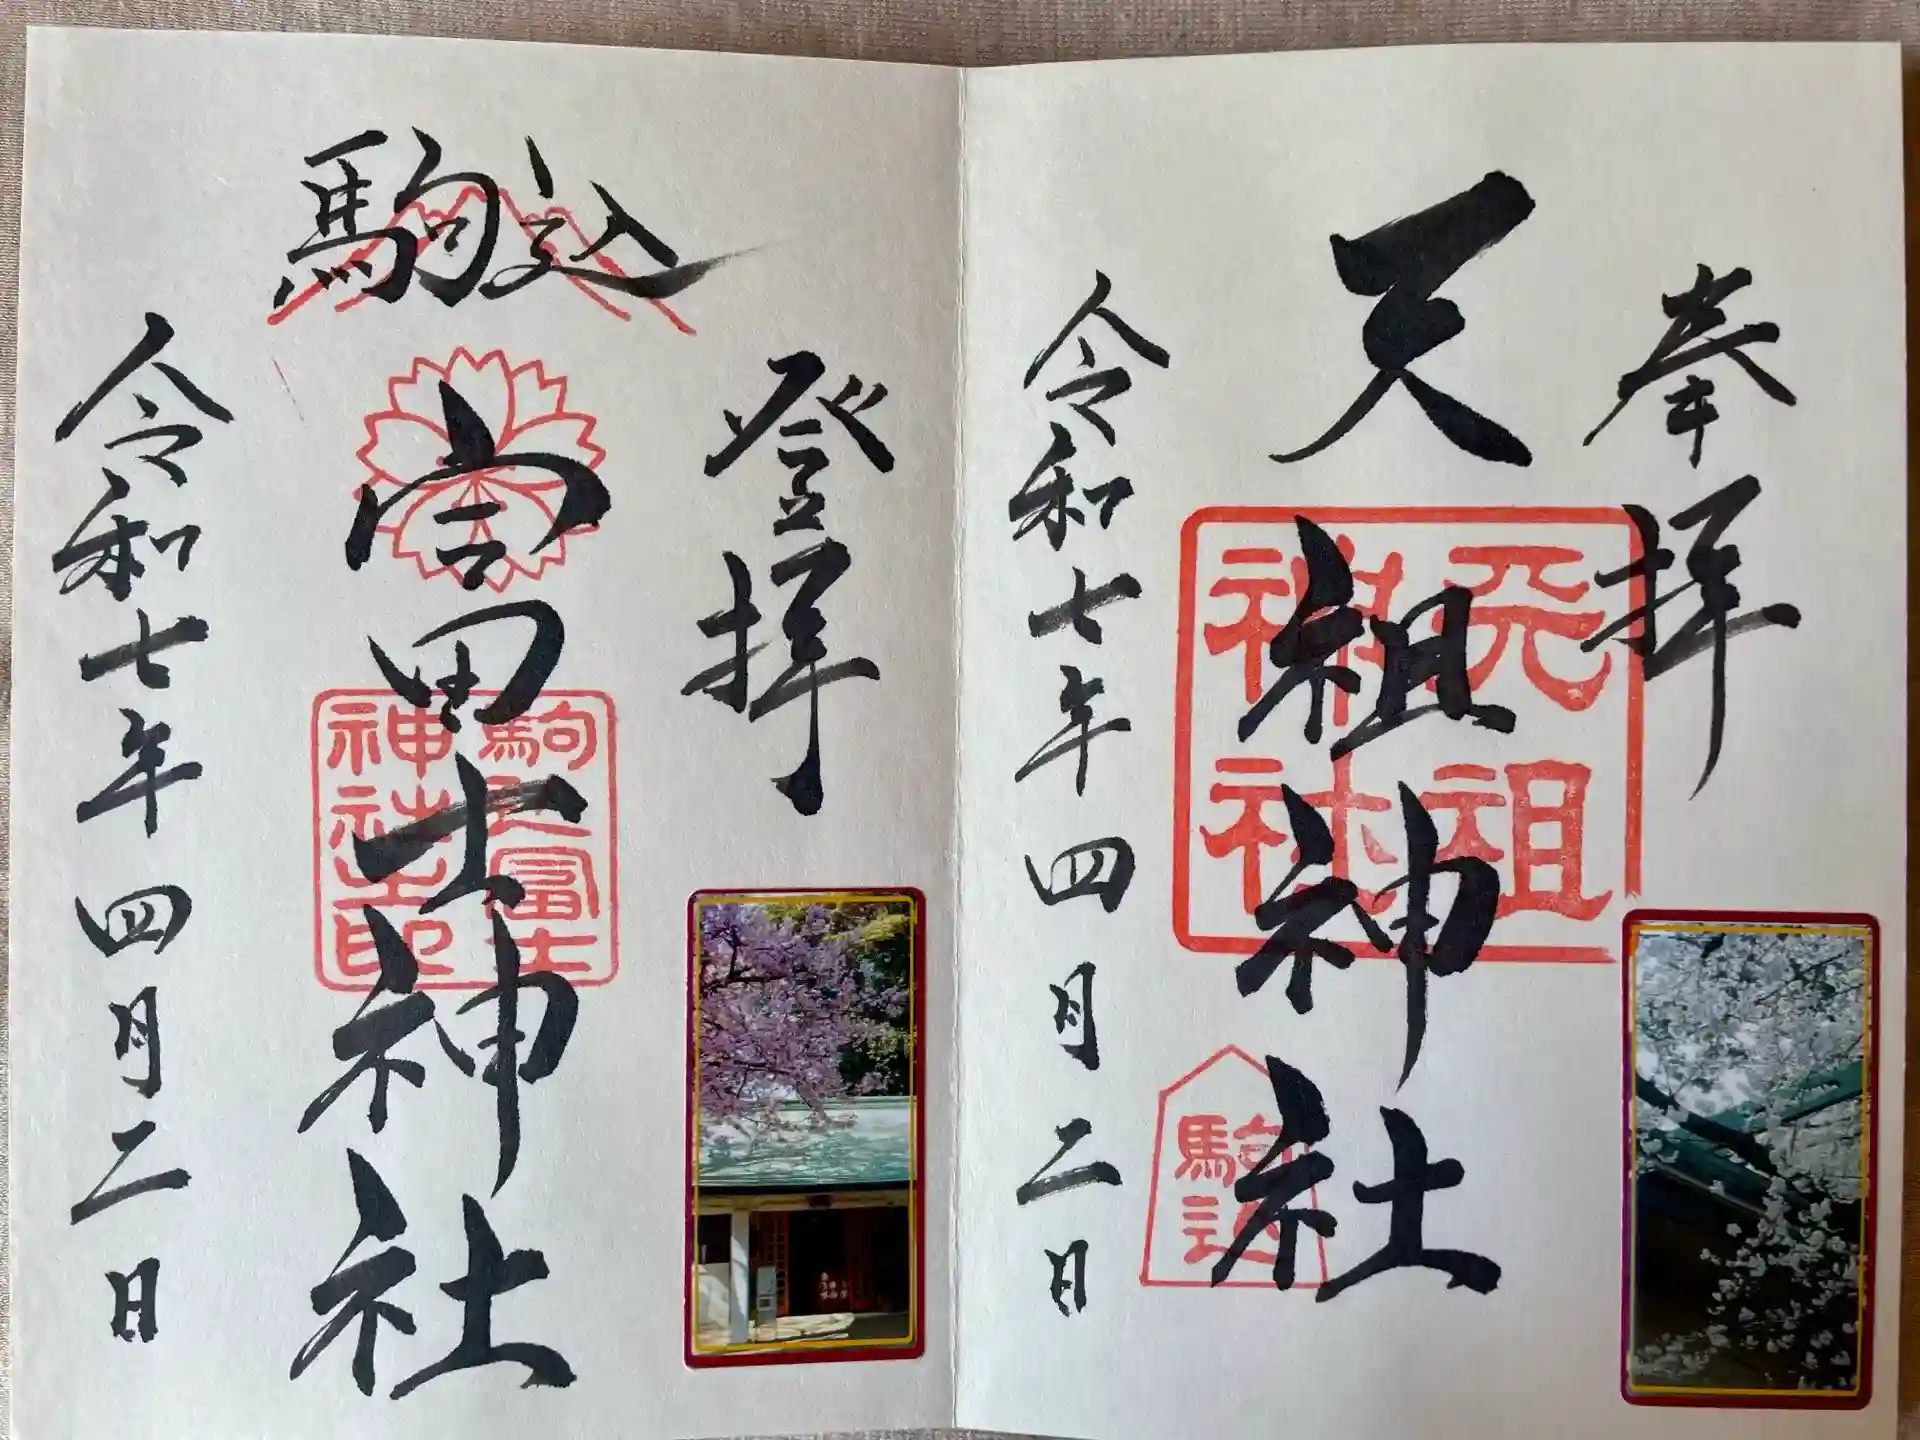 奉拝
天祖神社
天祖
神社
駒込
令和七年四月二日
登拝
駒込
冨士神社
駒込冨士
神社之印
令和七年四月二日